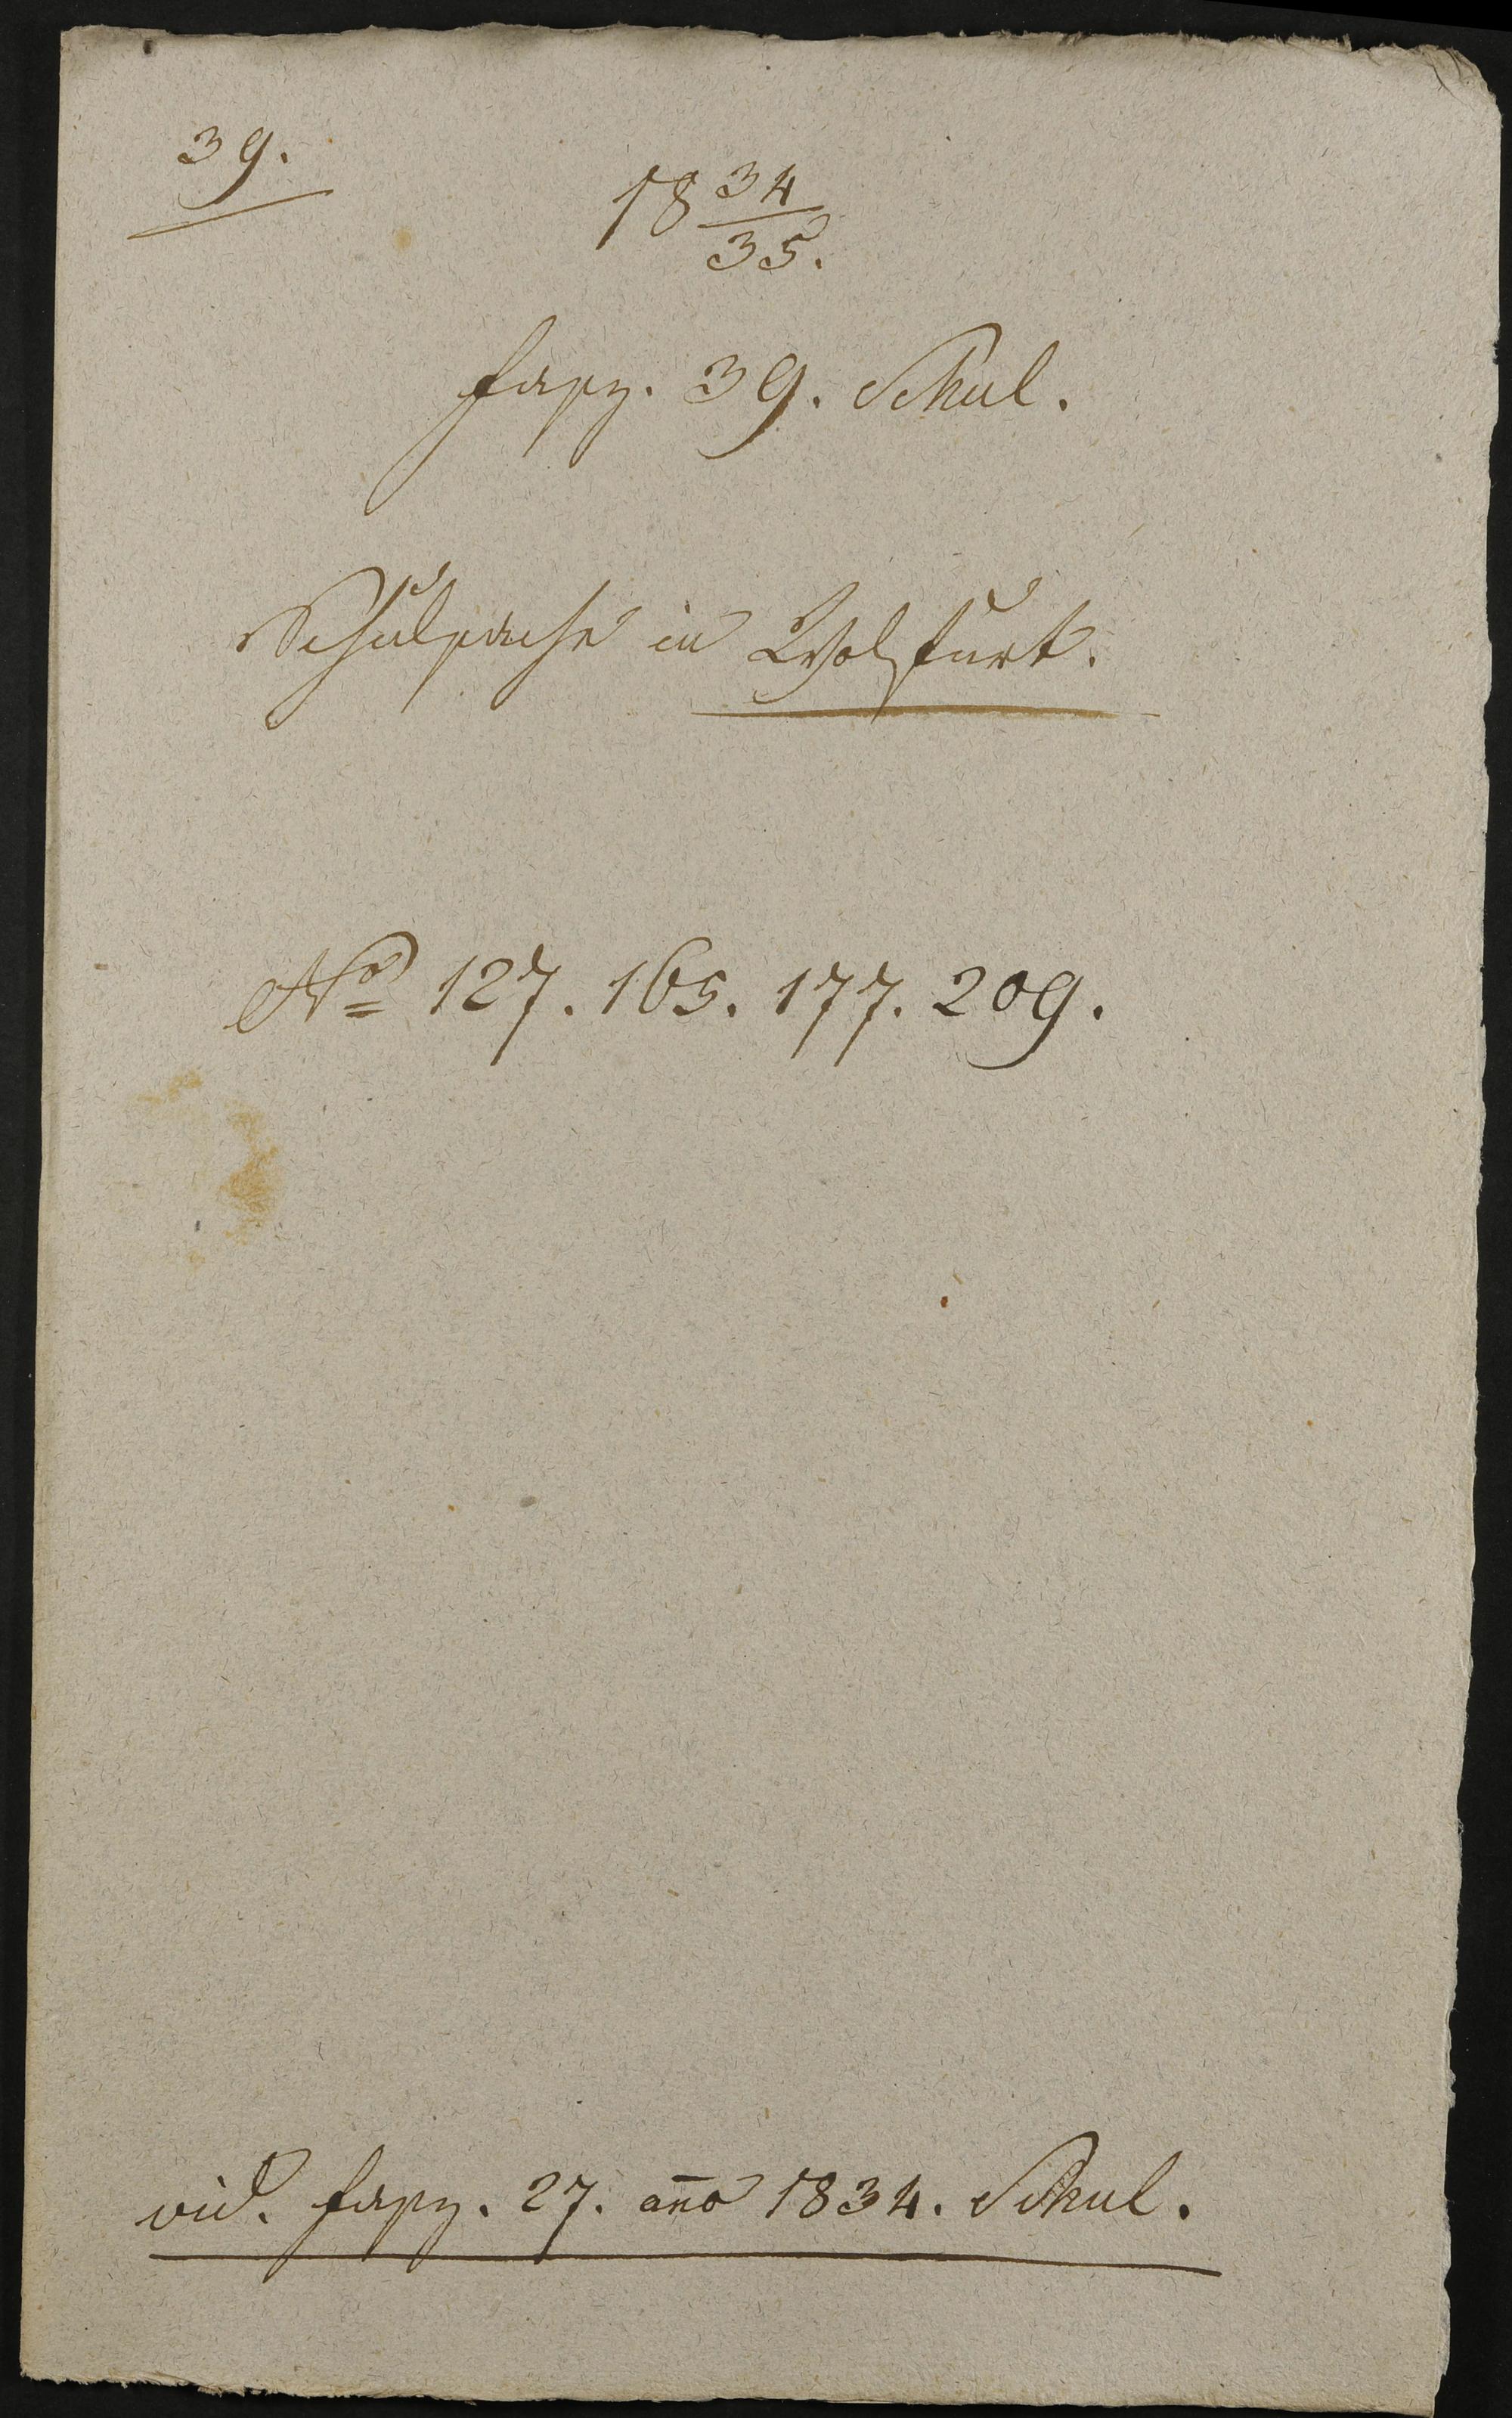 39.
18 34/35.
fasz. 39. Schul.
Schulsache in Wolfurt.
No 127. 165. 177. 209.
vid. fasz. 27. año 1834. Schul.